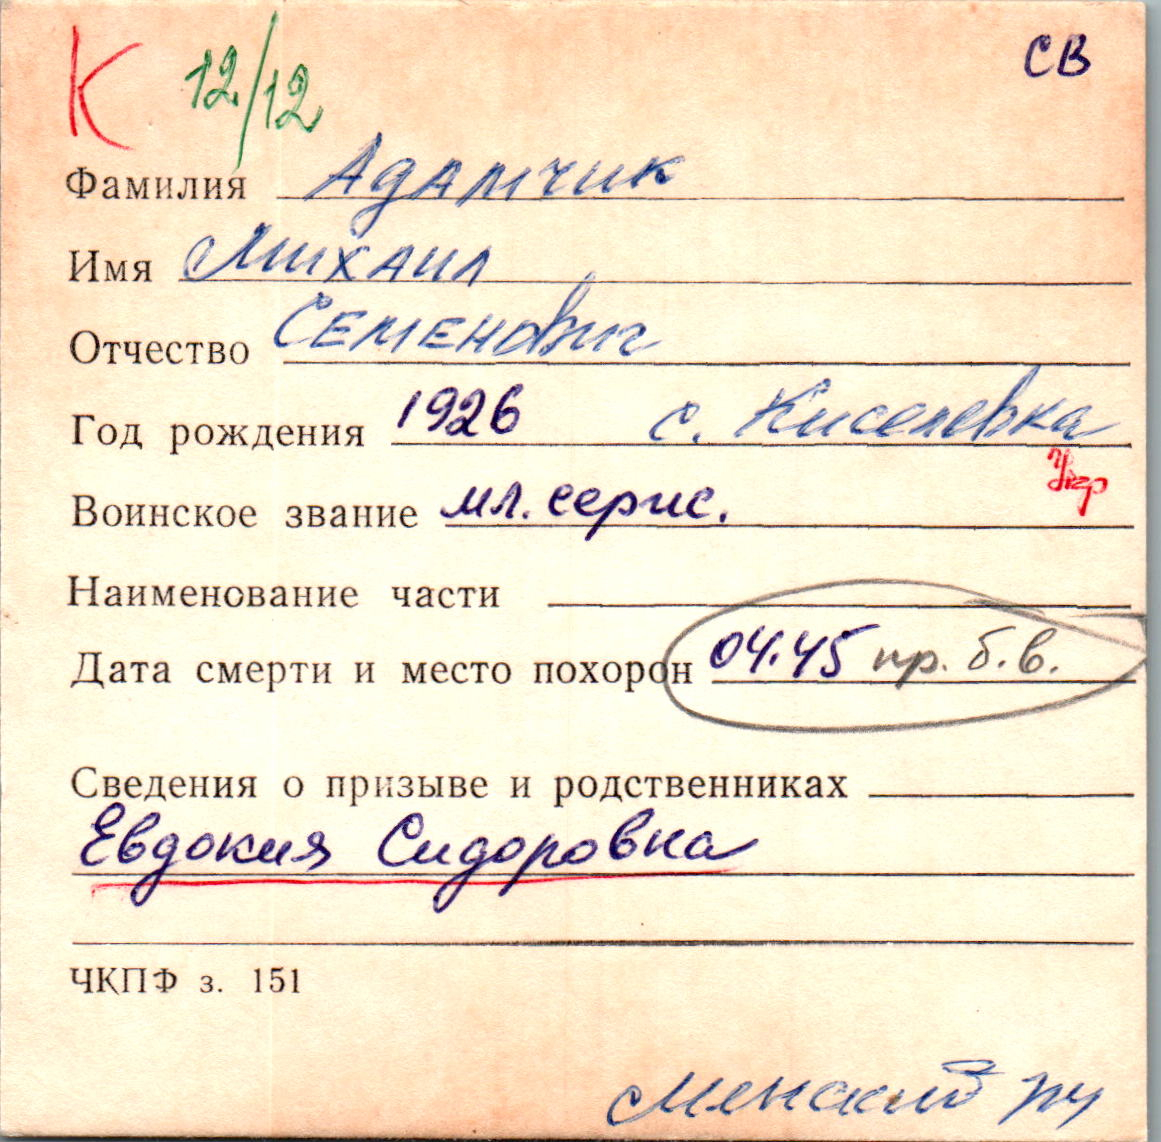 К 12/12 СВ
Фамилия Адамчик
Имя Михаил
Отчество Семенович
Год рождения 1926 с. Киселевка
Укр
Воинское звание мл. серж.
Наименование части
Дата смерти и место похорон 04.45 пр. б.в.
Сведения о призыве и родственниках
Евдокия Сидоровна
ЧКПФ з. 151
Менский